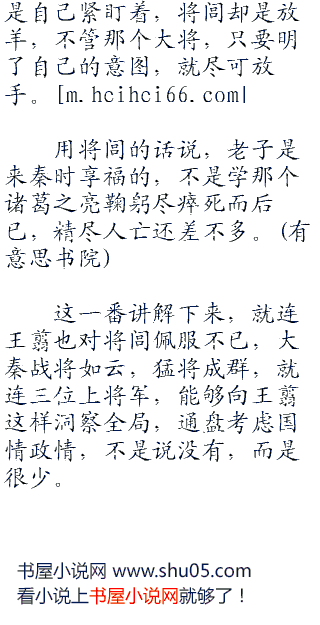 是自己紧盯着，将闾却是放
羊，不管那个大将，只要明
了自己的意图，就尽可放
手。[m.hcihci66.com|
用将闾的话说，老子是
来秦时享福的，不是学那个
诸葛之亮鞠躬尽瘁死而后
已，精尽人亡还差不多。(有
意思书院)
这一番讲解下来，就连
王翦也对将闾佩服不已，大
秦战将如云，猛将成群，就
连三位上将军，能够向王翦
这样洞察全局，通盘考虑国
情政情，不是说没有，而是
很少。
书屋小说网 www.shu05.com
看小说上书屋小说网就够了！